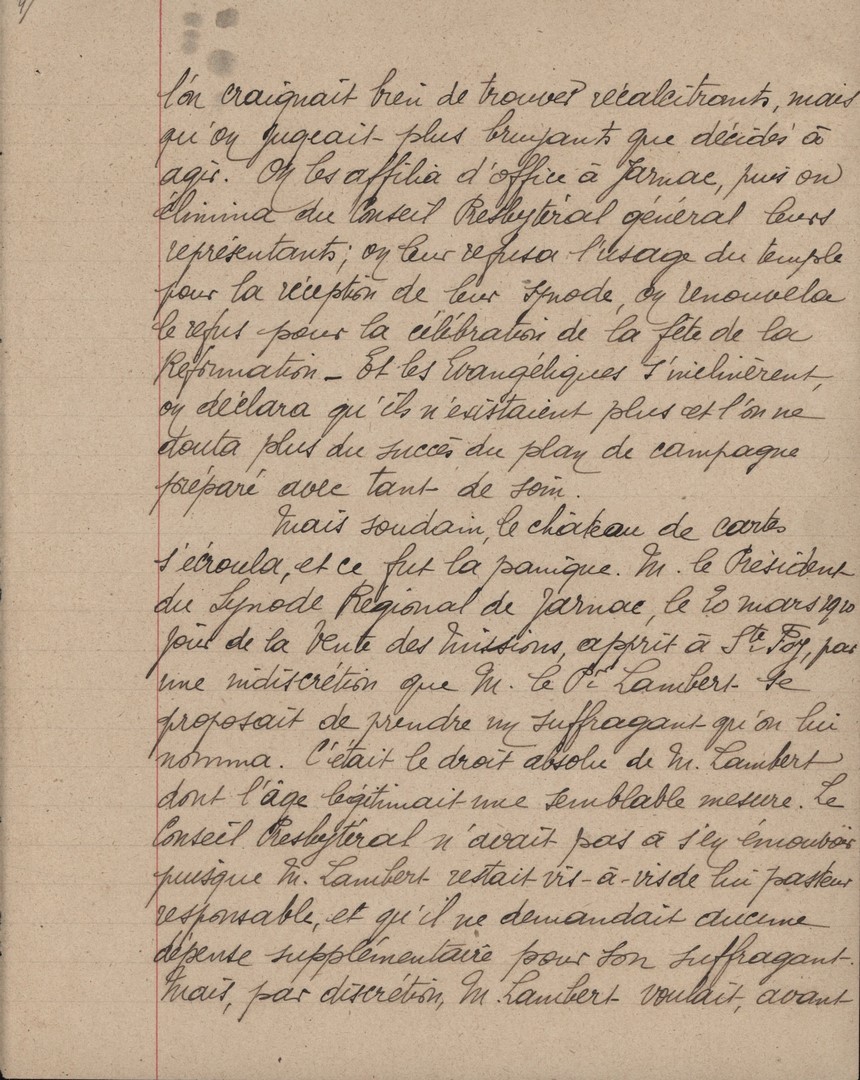 l'on craignait bien de trouver récalcitrants, mais
qu'on jugeait plus bruyants que décidés à
agir. On les affilia d'office à Jarnac, puis on
élimina du Conseil Presbytéral général leurs
représentants; on leur refusa l'usage du temple
pour la réception de leur synode, on renouvela
le refus pour la célébration de la fête de la
Réformation - Et les Evangéliques s'inclinèrent,
on déclara qu'ils n'existaient plus et l'on ne
douta plus du succès du plan de campagne
préparé avec tant de soin.
Mais soudain, le château de cartes
s'écroula, et ce fut la panique. M. le Président
du Synode Régional de Jarnac, le 20 mars 1910
jour de la Vente des Missions, apprit à Ste Foy, par
une indiscrétion que M. le Pr Lambert se
proposait de prendre un suffragant qu'on lui
nomma. C'était le droit absolu de M. Lambert
dont l'âge légitimait une semblable mesure. Le
Conseil Presbytéral n'avait pas à s'en émouvoir
puisque M. Lambert restait vis-à-vis de lui pasteur
responsable, et qu'il ne demandait aucune
dépense supplémentaire pour son suffragant.
Mais, par discrétion, M. Lambert voulait, avant